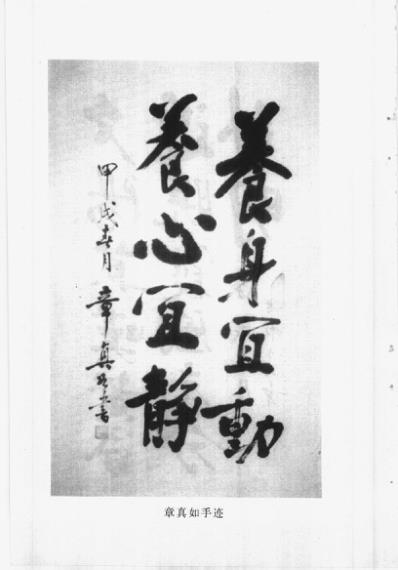 養身宜動
養心宜静
甲戌春月 章真如書
章真如手迹